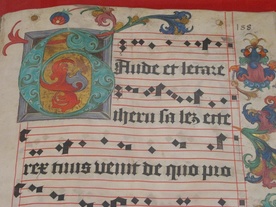 158
GAude et letare
iheru sa lez ecce
rex tuus venit de quo pro